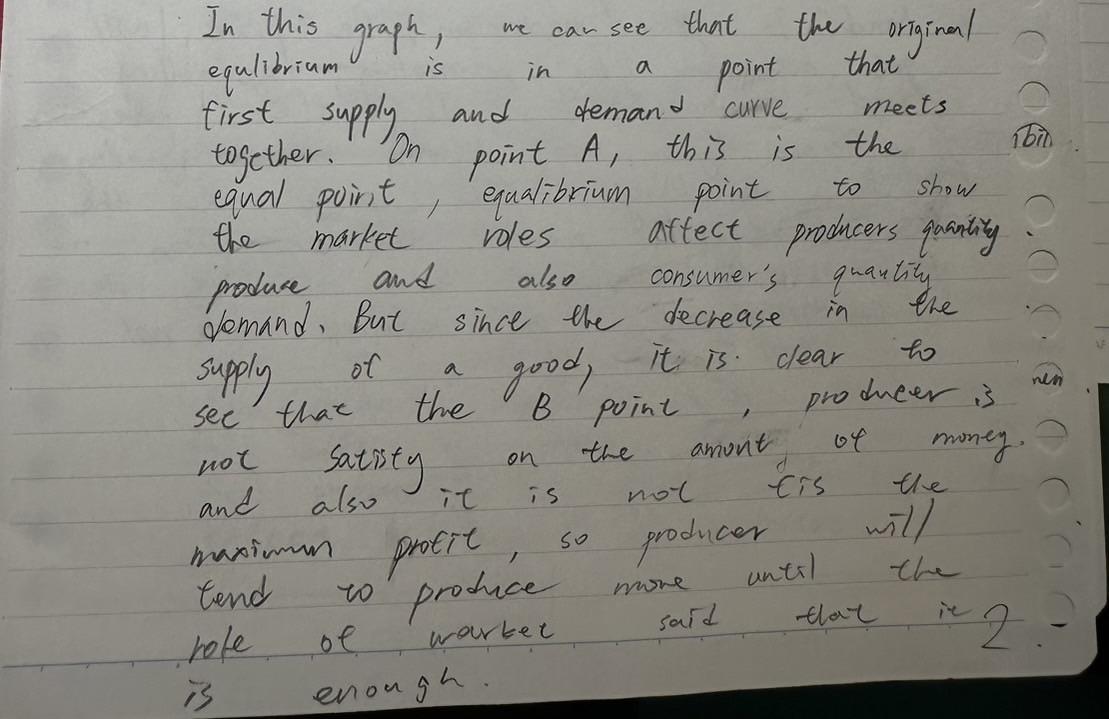 In this graph, we can see that the original
equlibrium is in a point that
first supply and demand curve meets
together. On point A, this is the
equal point, equalibrium point to show
the market roles affect producers quantity
produce and also consumer's quantity
demand. But since the decrease in the
supply of a good, it is clear to
see that the B point, producer is
not satisfy on the amount of money.
and also it is not the
maximum profit, so producer will
tend to produce more until the
role of market said that it
is enough.
2